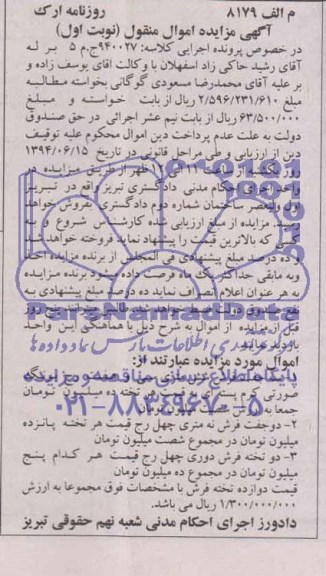 م الف ۸۱۷۹ روزنامه ارک
آگهی مزایده اموال منقول (نوبت اول)
در خصوص پرونده اجرایی کلاسه: ۹۴۰۰۲۷ج.م ۵ بر له
آقای رشید حاکی زاد اسفهلان با وکالت اقای یوسف زاده و
بر علیه آقای محمدرضا مسعودی گوگانی بخواسته مطالبه
مبلغ ۲/۵۹۶/۲۳۱/۶۱۰ ریال از بابت خواسته و مبلغ
۶۳/۵۰۰/۰۰۰ ریال از بابت نیم عشر اجرائی در حق صندوق
دولت به علت عدم پرداخت دین اموال محکوم علیه توقیف
و پس از ارزیابی و طی مراحل قانونی در تاریخ ۱۳۹۴/۰۶/۱۵
روز یکشنبه از ساعت ۱۱ الی ۱۲ ظهر از طریق مزایده در
واحد اجرای احکام مدنی دادگستری تبریز واقع در تبریز
اول ولیعصر ساختمان شماره دوم دادگستری بفروش خواهد
رسید. مزایده از مبلغ ارزیابی شده کارشناس شروع و به
کسی که بالاترین قیمت را پیشنهاد نماید فروخته خواهد شد
و ده درصد مبلغ پیشنهادی فی المجلس از برنده مزایده اخذ
و به مابقی حداکثر یک ماه فرصت داده میشود برنده مزایده
به هر عنوان اعلام انصراف نماید ده درصد مبلغ پیشنهادی به
نفع صندوق دولت ضبط خواهد شد. طالبین میتوانند پنج روز
قبل از مزایده از اموال به شرح ذیل با هماهنگی این واحد
بازدید نمایند
اموال مورد مزایده عبارتند از:
صورتی کرم پسته ای قیمت هر تخته ده میلیون تومان
جمعا به ارزش شصت میلیون تومان
۲- دو جفت فرش نه متری چهل رج قیمت هر تخته پانزده
میلیون تومان در مجموع شصت میلیون تومان
۳- دو تخته فرش دوری چهل رج قیمت هر کدام پنج
میلیون تومان در مجموع ده میلیون تومان
قیمت دوازده تخته فرش با مشخصات فوق مجموعا به ارزش
۱/۳۰۰/۰۰۰/۰۰۰ ریال می باشد.
دادورز اجرای احکام مدنی شعبه نهم حقوقی تبریز
ParsNamadData
فن آوری اطلاعات پارس نماد داده ها
پایگاه اطلاع رسانی مناقصه و مزایده
۰۲۱-۸۸۳۴۹۶۷۰-۵